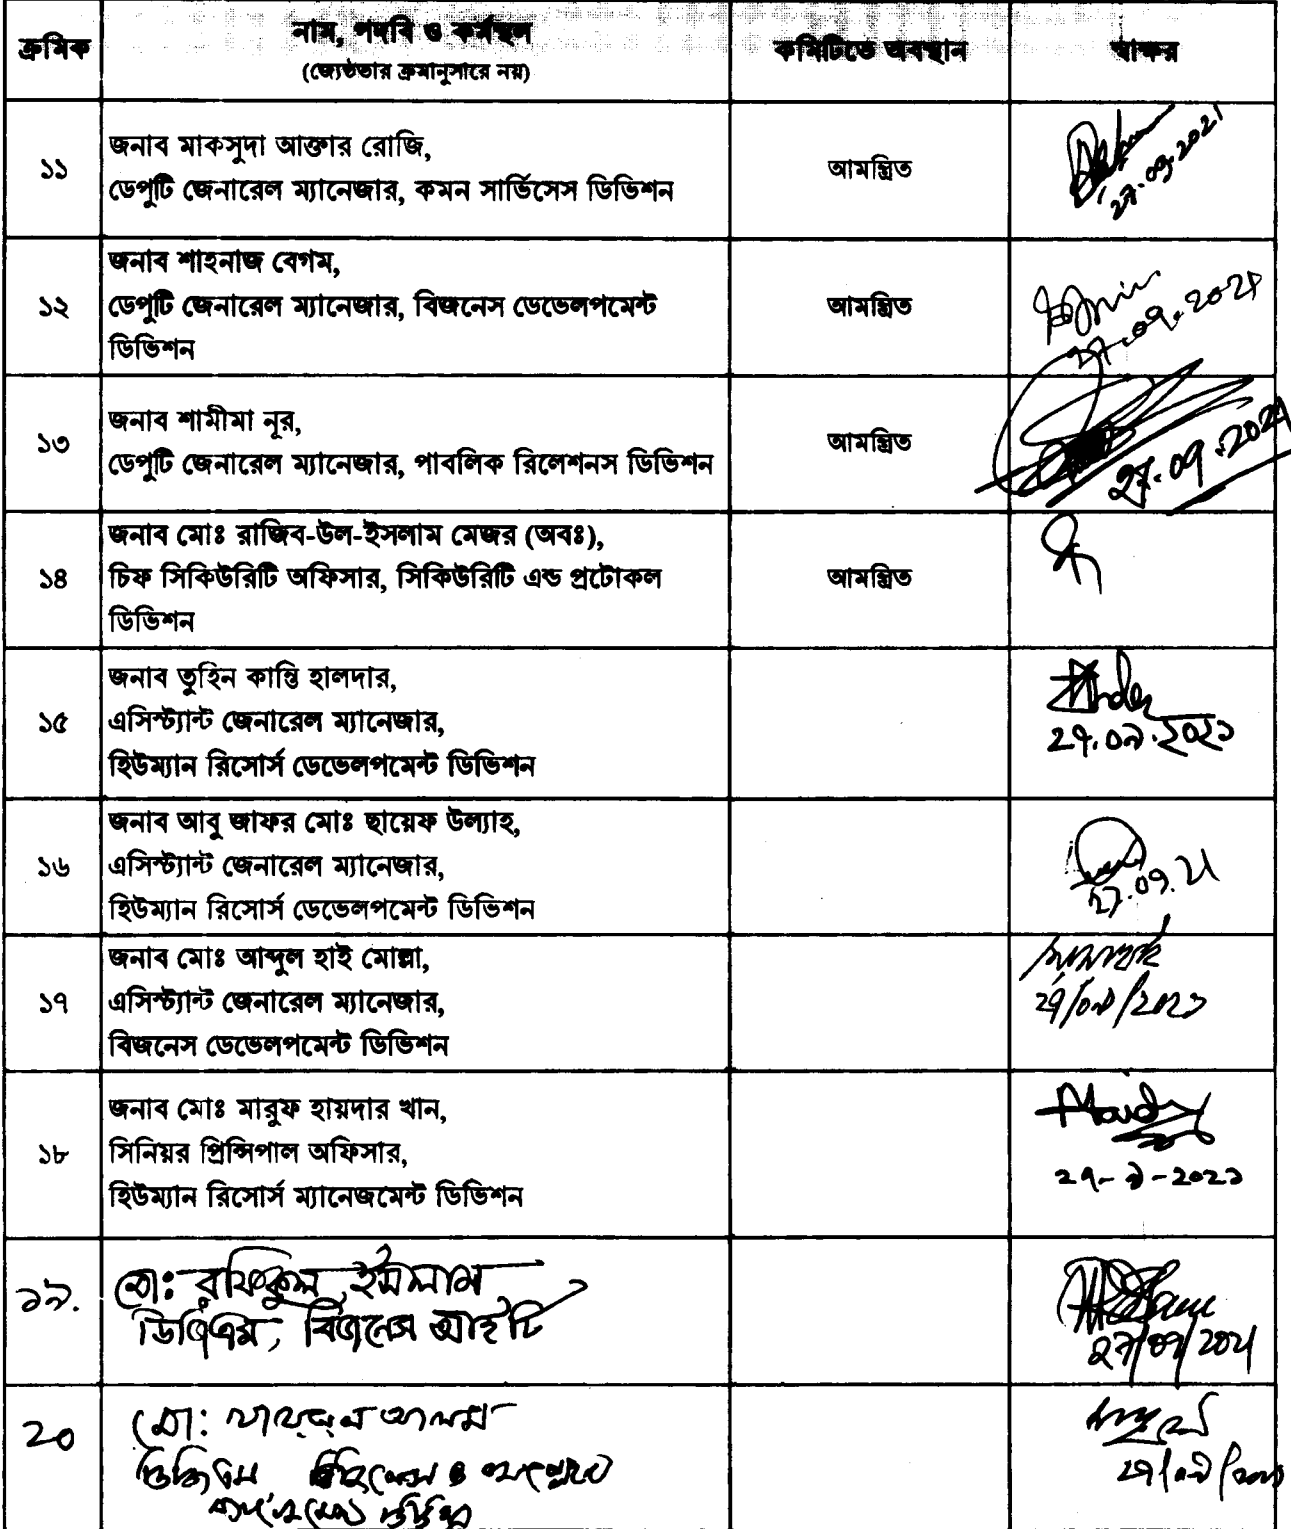 ক্রমিক
নাম, পদবি ও কর্মস্থল
(জ্যেষ্ঠতার ক্রমানুসারে নয়)
কমিটিতে অবস্থান
স্বাক্ষর
১১
জনাব মাকসুদা আক্তার রোজি,
ডেপুটি জেনারেল ম্যানেজার, কমন সার্ভিসেস ডিভিশন
আমন্ত্রিত
27.09.2021
১২
জনাব শাহনাজ বেগম,
ডেপুটি জেনারেল ম্যানেজার, বিজনেস ডেভেলপমেন্ট
ডিভিশন
আমন্ত্রিত
27.09.2021
১৩
জনাব শামীমা নূর,
ডেপুটি জেনারেল ম্যানেজার, পাবলিক রিলেশনস ডিভিশন
আমন্ত্রিত
27.09.2021
১৪
জনাব মোঃ রাজিব-উল-ইসলাম মেজর (অবঃ),
চিফ সিকিউরিটি অফিসার, সিকিউরিটি এন্ড প্রটোকল
ডিভিশন
আমন্ত্রিত
১৫
জনাব তুহিন কান্তি হালদার,
এসিস্ট্যান্ট জেনারেল ম্যানেজার,
হিউম্যান রিসোর্স ডেভেলপমেন্ট ডিভিশন
২৭.০৯.২০২১
১৬
জনাব আবু জাফর মোঃ ছায়েফ উল্যাহ,
এসিস্ট্যান্ট জেনারেল ম্যানেজার,
হিউম্যান রিসোর্স ডেভেলপমেন্ট ডিভিশন
27.09.21
১৭
জনাব মোঃ আব্দুল হাই মোল্লা,
এসিস্ট্যান্ট জেনারেল ম্যানেজার,
বিজনেস ডেভেলপমেন্ট ডিভিশন
২৭/০৯/২০২১
১৮
জনাব মোঃ মারুফ হায়দার খান,
সিনিয়র প্রিন্সিপাল অফিসার,
হিউম্যান রিসোর্স ম্যানেজমেন্ট ডিভিশন
২৭-৯-২০২১
১৯.
মো: রফিকুল ইসলাম
ডিজিএম, বিজনেস আইটি
27/09/2021
২০
মো: আলম
ডিজিএম